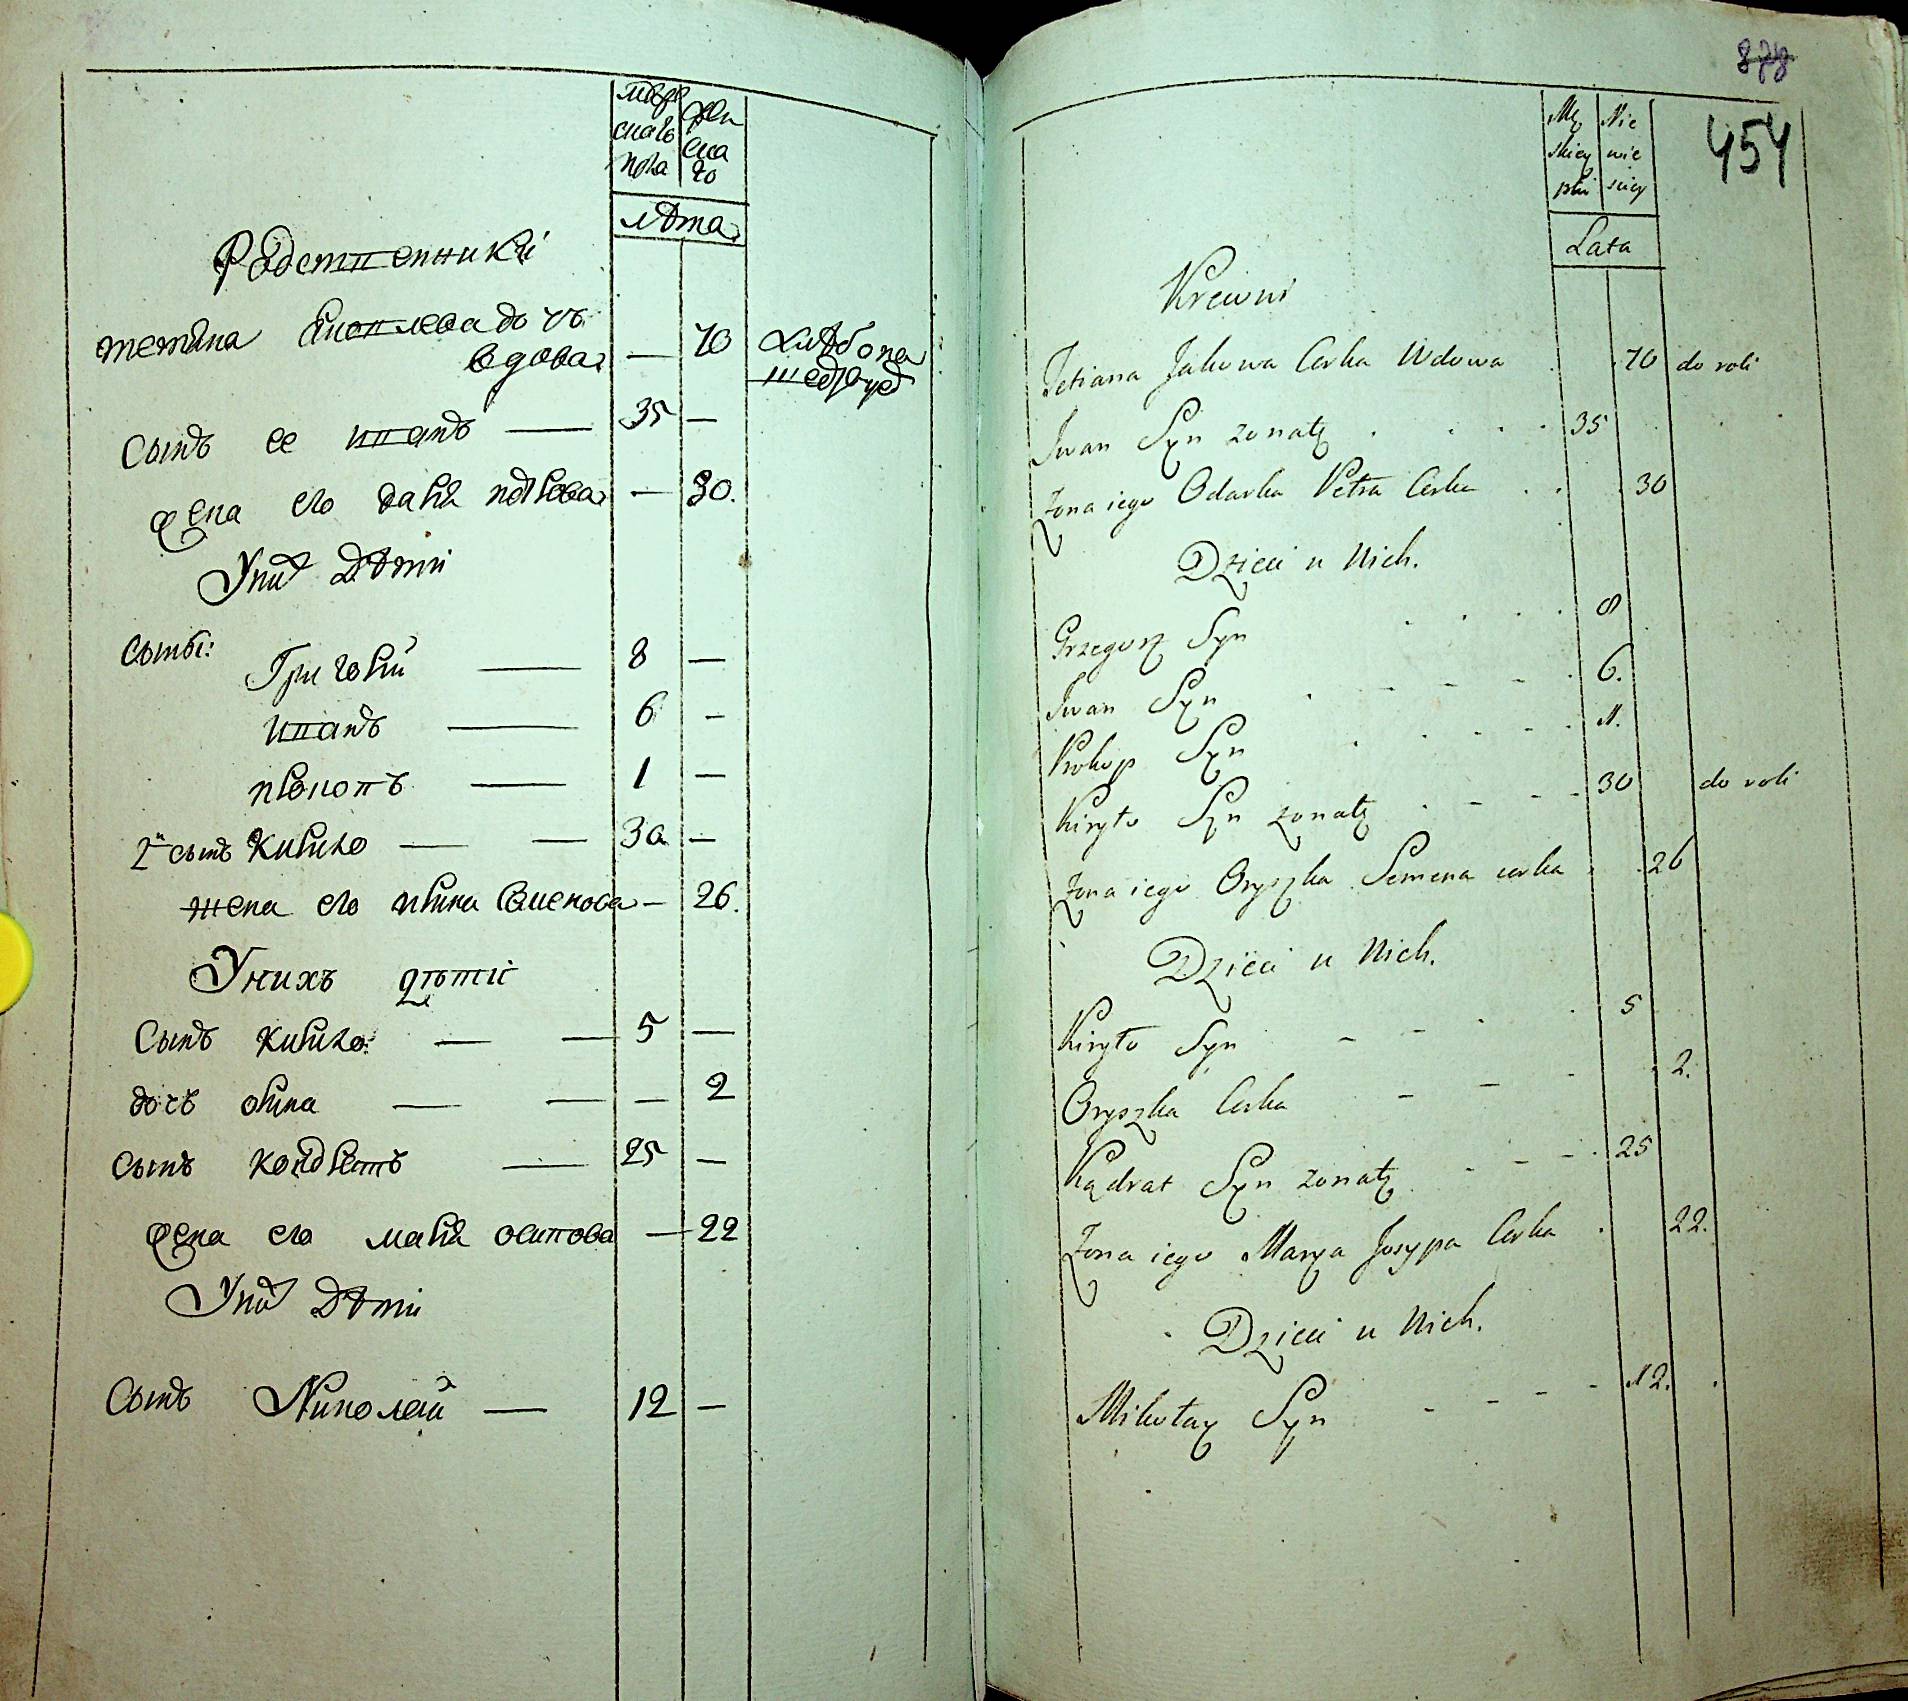 мужескаго пола
женскаго
лѣта
Родственники
тетяна Яковлева дочь
вдова — 70 хлѣбопа
шедруд
Сынъ ее иванъ — 35 —
жена его даря петрова — 30.
У них Дѣти
Сыны:
Григорий — 8 —
иванъ — 6 —
прокопъ — 1 —
2й сынъ кирило — — 30 —
жена его ирина Семенова — 26.
У нихъ дѣти
Сынъ кирило — — 5 —
дочь орина — — — 2
сынъ кондратъ — 25 —
жена его маря осипова — 22
У них Дѣти
Сынъ Николай — 12 —
878
454
Mę Nie
skiey wie
płci sciey
Lata
Krewni
Tetiana Jakowa Corka Wdowa 70 do roli
Iwan Syn zonaty 35
Zona iego Odarka Petra Corka 30
Dzieci u Nich.
Grzegorz Syn 8
Iwan Syn 6.
Prokop Syn 1.
Kiryło Syn zonaty 30 do roli
Zona iego Oryszka Semena corka 26
Dzieci u Nich.
Kiryło Syn 5
Oryszka Corka 2.
Kądrat Syn zonaty 25
Zona iego Marya Josypa Corka 22.
Dzieci u Nich.
Mikołay Syn 12.